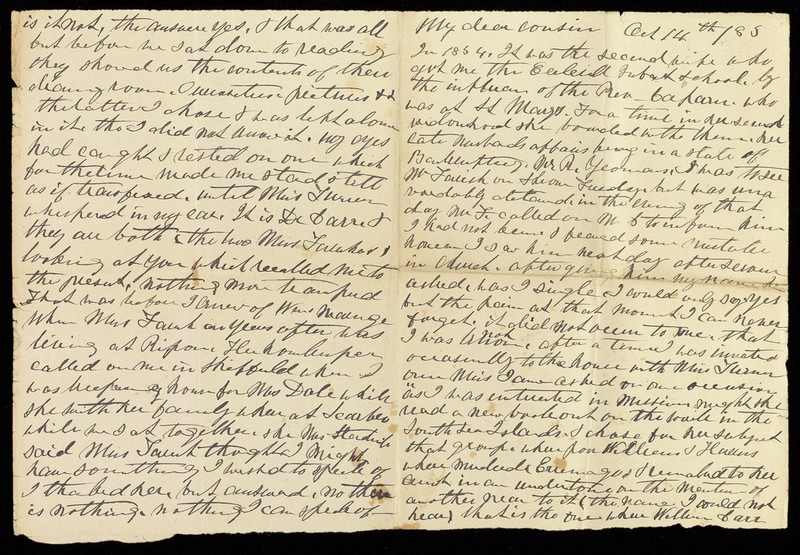 My dear cousin Oct 14th 185
In 1854. It was the second wife who
got me the Infant School, by
the influence of the Rev. who
was at St Marys. For a time in her
widowhood she boarded with them. her
late husbands affairs being in a state of
Bankruptcy. Mr R. Yeomans, I was to see
Mr on Tuesday, but was una
voidably detained in the evening of that
day Mr F. called on Mr to inform him
I had not been. I feared some mistake
however I saw him next day after
in Church. after giving him my name he
asked, was I single I could only say yes
but the pain at that moment I can never
forget. it did not occur to me, that
I was after a time I was invited
occasionally to the house with Miss Turner
once Miss Jane asked on one occasion
"as I was interested in Mission might she
read a new book out on the work in the
South Sea Islands. I chose for her subject
that group where poor Williams & Harris
were murdered Erromanga I remarked to her
in an undertone on the mention of
another near to it (the name I could not
hear) that is the one where William Carr
is it not, the answer yes, & that was all
but before we sat down to reading
they showed us the contents of their
drawing room. Curiosities pictures &c
the latter I chose & was left alone
in it tho I did not know it. my eyes
had caught & rested on one which
for the time made me stand still
as if transfixed. until Miss Turner
whispered in my ear. It is Dr Carr &
they are both, the two Miss &
looking at you which recalled me to
the present, nothing more transpired
That was before I knew of Wms marriage
When Miss years after was
living at Ripon. Her housekeeper
called on me in Sheffield when I
was keeping house for Mrs Dale while
she with her family were at Scarbro
while we sat together she Mrs
said Miss thought I might
have something I wished to speak of
I thanked her, but answered, no there
is nothing, nothing I can speak of